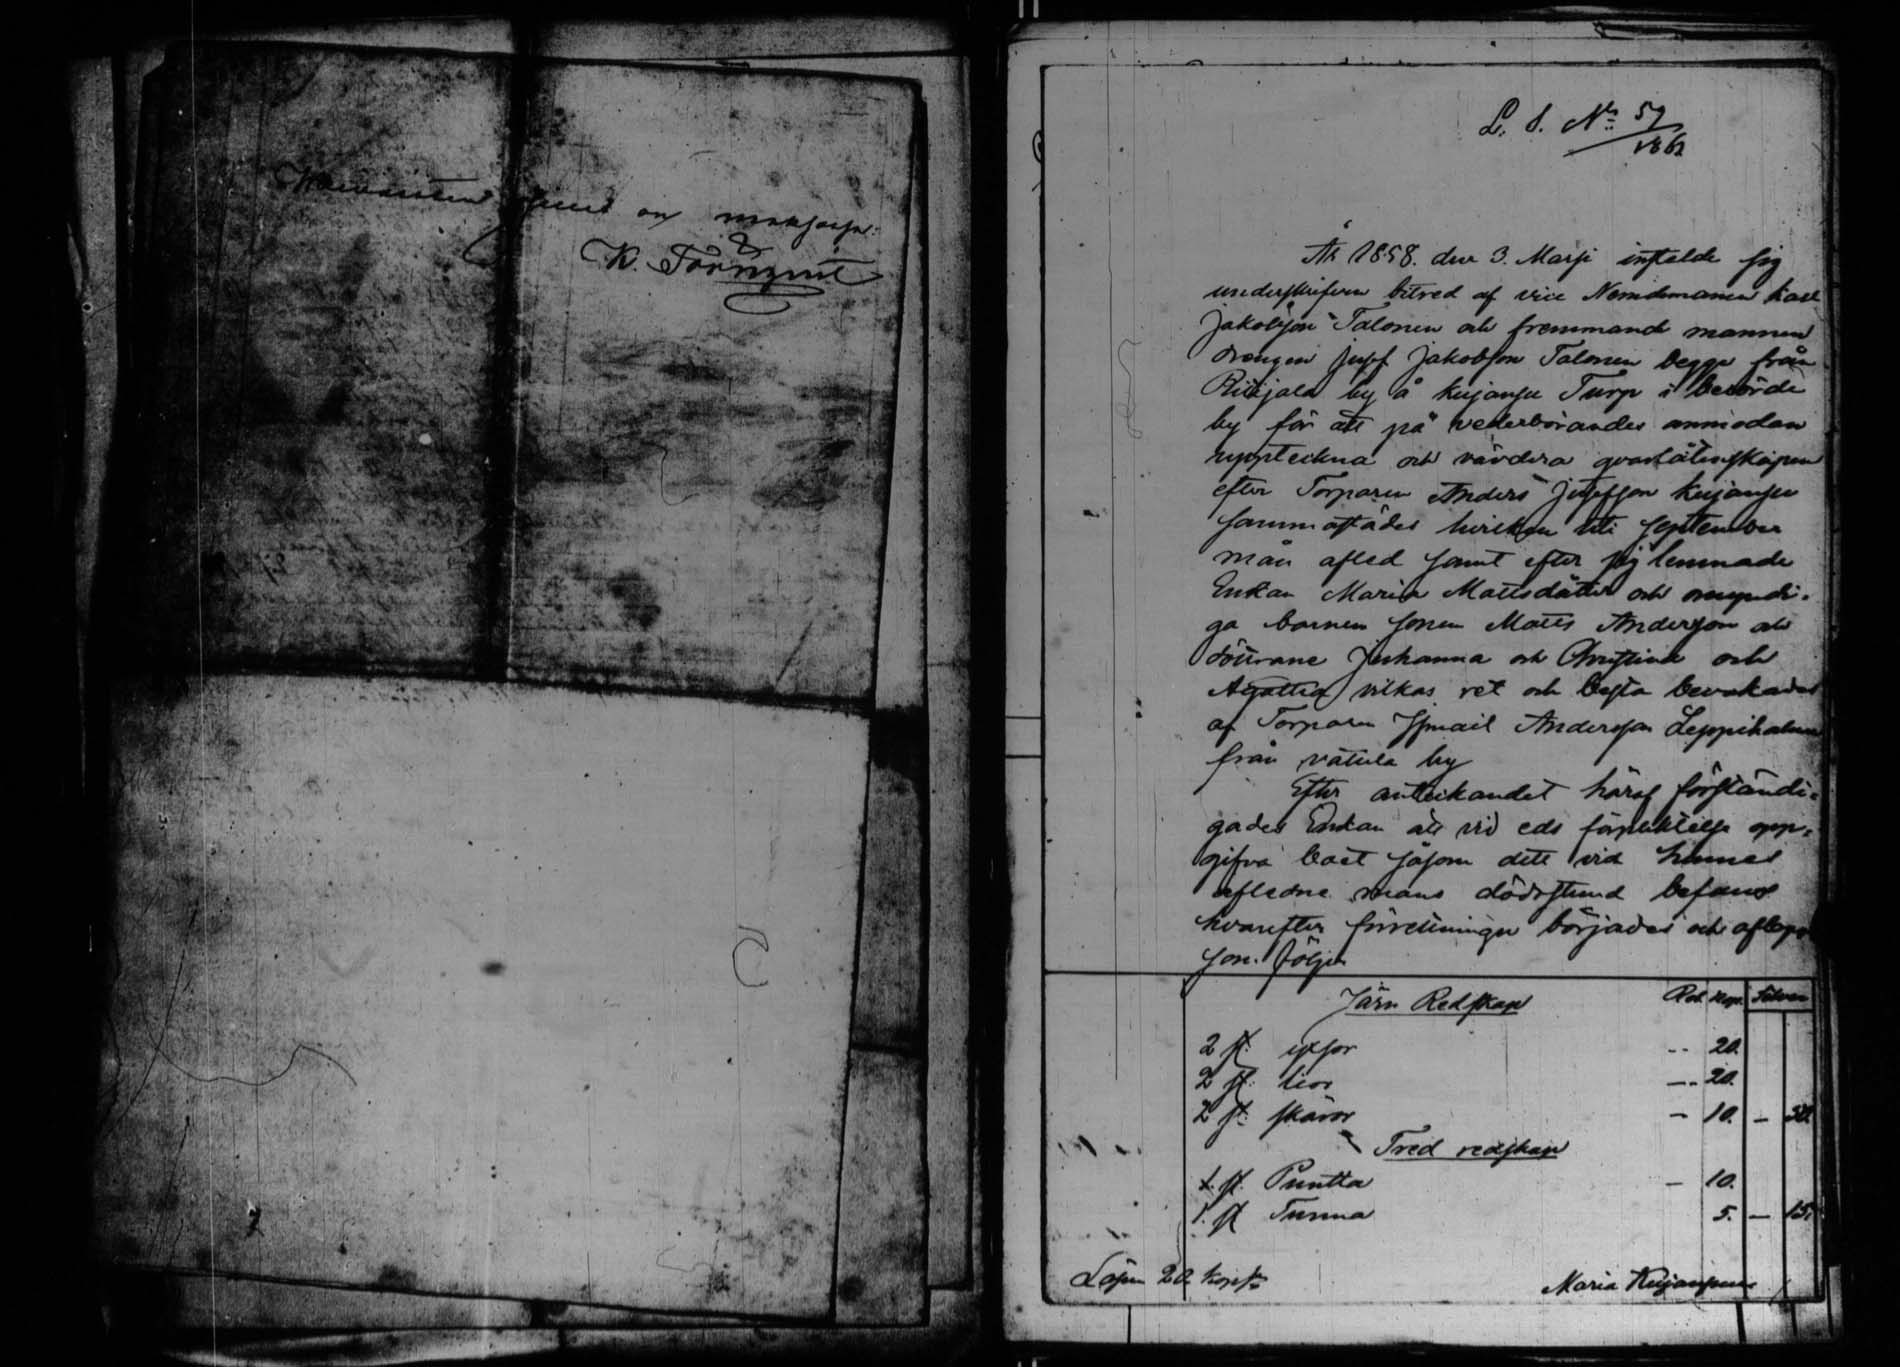 K. Törnqvist
L. S. No 59/1862
År 1858. den 3. Marsi instelde sig
underskrifven bitred af vice Nemdemannen Karl
Jakobsson Talonen och fremmande mannen
drengen Jusef Jakobsson Talonen begge från
by å Kujanpä Turp i berörde
by för att på vederbörandes anmodan
uppteckna och värdera qvarlåtenskapen
efter Torparen Anders Jusefson Kujanpä
sammastädes hvilken uti September
mån afled samt efter sig lemnade
Enkan Maria Mattsdåtter och omyndi-
ga barnen sonen Matts Andersson och
döttrarne Juhanna och Christina och
vilkas ret och besta bevakades
af Torparen Ismail Andersson
från vätula by
Efter antecknandet häraf förständi-
gades Enkan att vid eds förpliktelse opp-
gifva boet såsom dett vid hennes
afledne mans dödsstund befans
hvarefter förretningen börjades och aflopp
som följer
Järn Redskap Rub. Kop. Silver
2 st. yxsor -- 20.
2 st. liar -- 20.
2 st. skäror - 10. - 50.
Tred redskap
1. st. Puntta - 10.
1. st Tunna 5. - 15.
Lösen 20 kopek
Maria Kujanpää